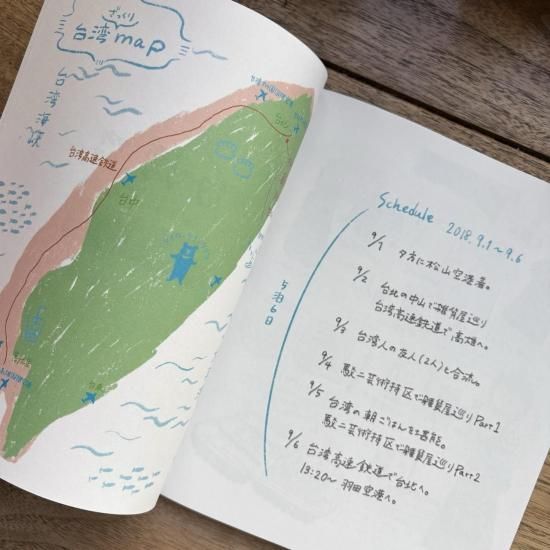 ざっくり
台湾map
台湾海峡
台湾高速鉄道
台中
Schedule 2018.9.1〜9.6
5泊6日
9/1 夕方に松山空港着。
9/2 台北の中山で雑貨屋巡り
台湾高速鉄道で高雄へ。
9/3 台湾人の友人(2人)と合流。
9/4 駁二芸術特区で雑貨屋巡りPart1
9/5 台湾の朝ごはんを堪能。
駁二芸術特区で雑貨屋巡りPart2
9/6 台湾高速鉄道で台北へ。
13:20〜 羽田空港へ。